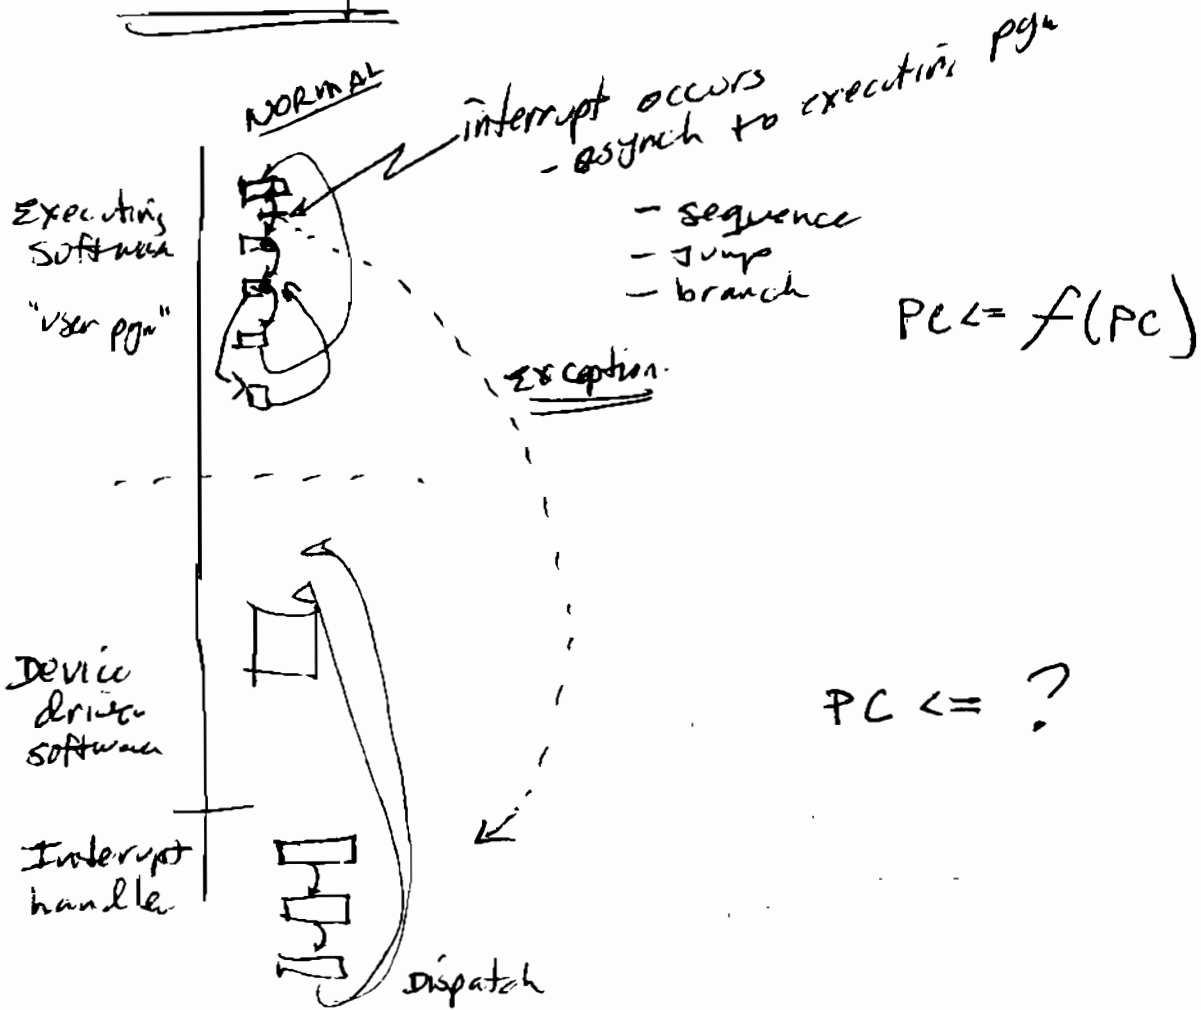 NORMAL
interrupt occurs
- asynch to executing pgm
Executing
software
"user pgm"
- sequence
- Jump
- branch
PC <= f(PC)
Exception
Device
driver
software
PC <= ?
Interrupt
handler
Dispatch